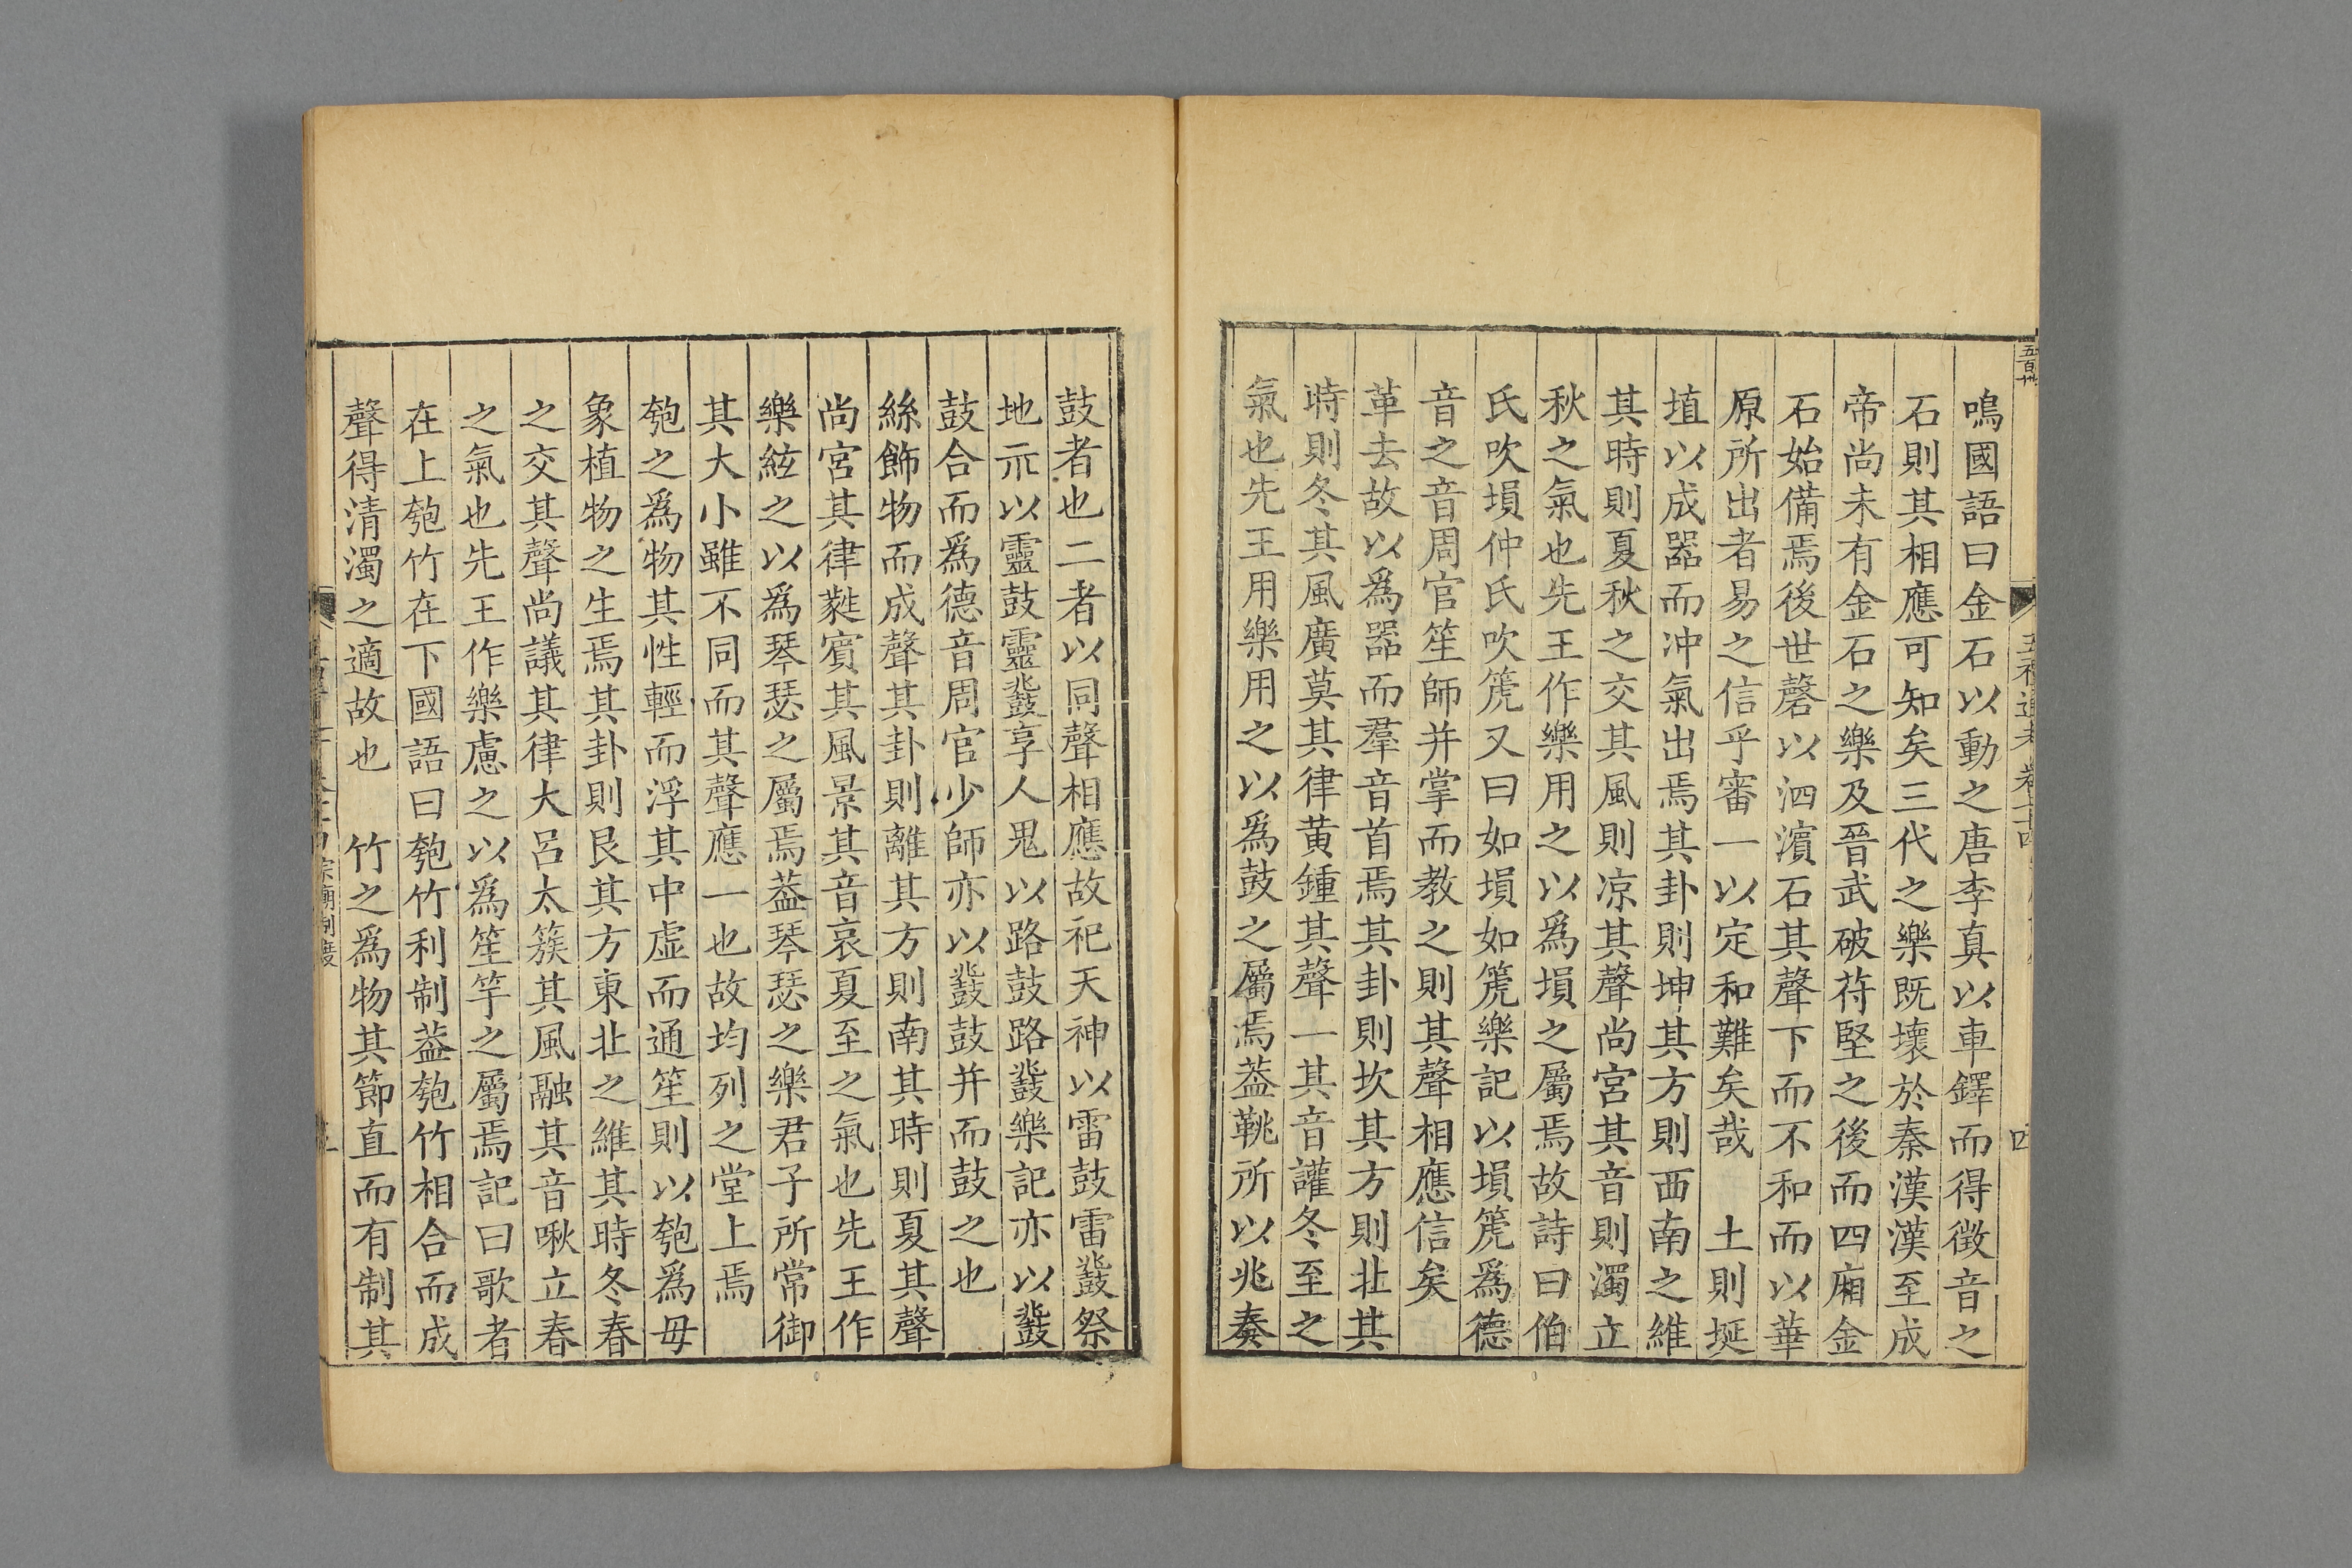 鳴國語曰金石以動之唐李真以車鐸而得徵音之
石則其相應可知矣三代之樂既壞於秦漢漢至成
帝尚未有金石之樂及晉武破苻堅之後而四廂金
石始備焉後世磬以泗濱石其聲下而不和而以華
原所出者易之信乎審一以定和難矣哉 土則埏
埴以成器而冲氣出焉其卦則坤其方則西南之維
其時則夏秋之交其風則凉其聲尚宮其音則濁立
秋之氣也先王作樂用之以爲塤之屬焉故詩曰伯
氏吹塤仲氏吹箎又曰如塤如箎樂記以塤箎爲德
音之音周官笙師并掌而教之則其聲相應信矣
革去故以爲器而羣音首焉其卦則坎其方則北其
時則冬其風廣莫其律黄鍾其聲一其音讙冬至之
氣也先王用樂用之以爲鼓之屬焉葢鞉所以兆奏
鼓者也二者以同聲相應故祀天神以雷鼓雷鼗祭
地示以靈鼓靈鼗享人鬼以路鼓路鼗樂記亦以鼗
鼓合而爲德音周官少師亦以鼗鼓并而鼓之也
絲飾物而成聲其卦則離其方則南其時則夏其聲
尚宮其律蕤賓其風景其音哀夏至之氣也先王作
樂絃之以爲琴瑟之屬焉葢琴瑟之樂君子所常御
其大小雖不同而其聲應一也故均列之堂上焉
匏之爲物其性輕而浮其中虚而通笙則以匏爲母
象植物之生焉其卦則艮其方東北之維其時冬春
之交其聲尚議其律大呂太簇其風融其音啾立春
之氣也先王作樂慮之以爲笙竽之屬焉記曰歌者
在上匏竹在下國語曰匏竹利制葢匏竹相合而成
聲得清濁之適故也 竹之爲物其節直而有制其